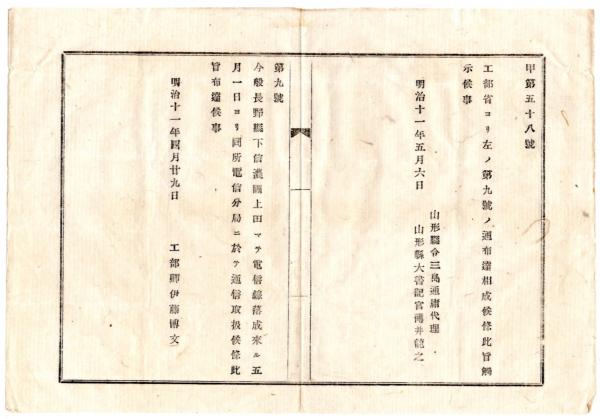 甲第五十八號
工部省ヨリ左ノ第九號ノ通布達相成候條此旨觸
示候事
明治十一年五月六日
山形縣令三島通庸代理
山形縣大書記官薄井龍之
第九號
今般長野縣下信濃國上田マテ電信線落成來ル五
月一日ヨリ同所電信分局ニ於テ通信取扱候條此
旨布達候事
明治十一年四月廿九日
工部卿伊藤博文